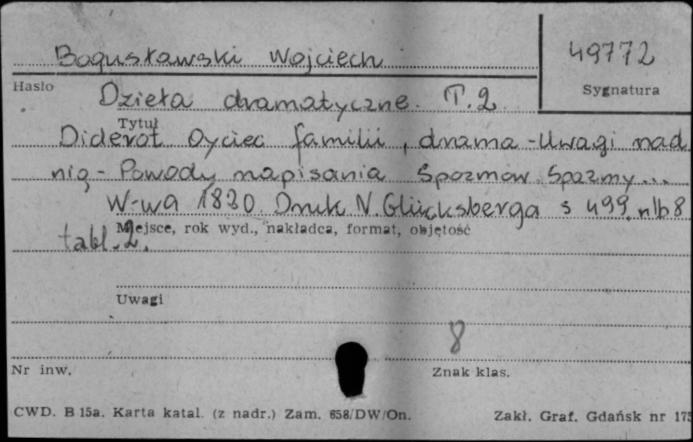 Bogusławski Wojciech
49772
Hasło
Sygnatura
Dzieła dramatyczne. T.2
Tytuł
Diderot Oyciec familii, drama - Uwagi nad
nią - Powody napisania Spazmów. Spazmy...
W-wa 1820 Druk N. Glücksberga s 499, nlb 8
tabl. 2.
Miejsce, rok wyd., nakładca, format, objętość
Uwagi
8
Nr inw.
Znak klas.
CWD. B 15a. Karta katal. (z nadr.) Zam. 658/DW/On.
Zakł. Graf. Gdańsk nr 175